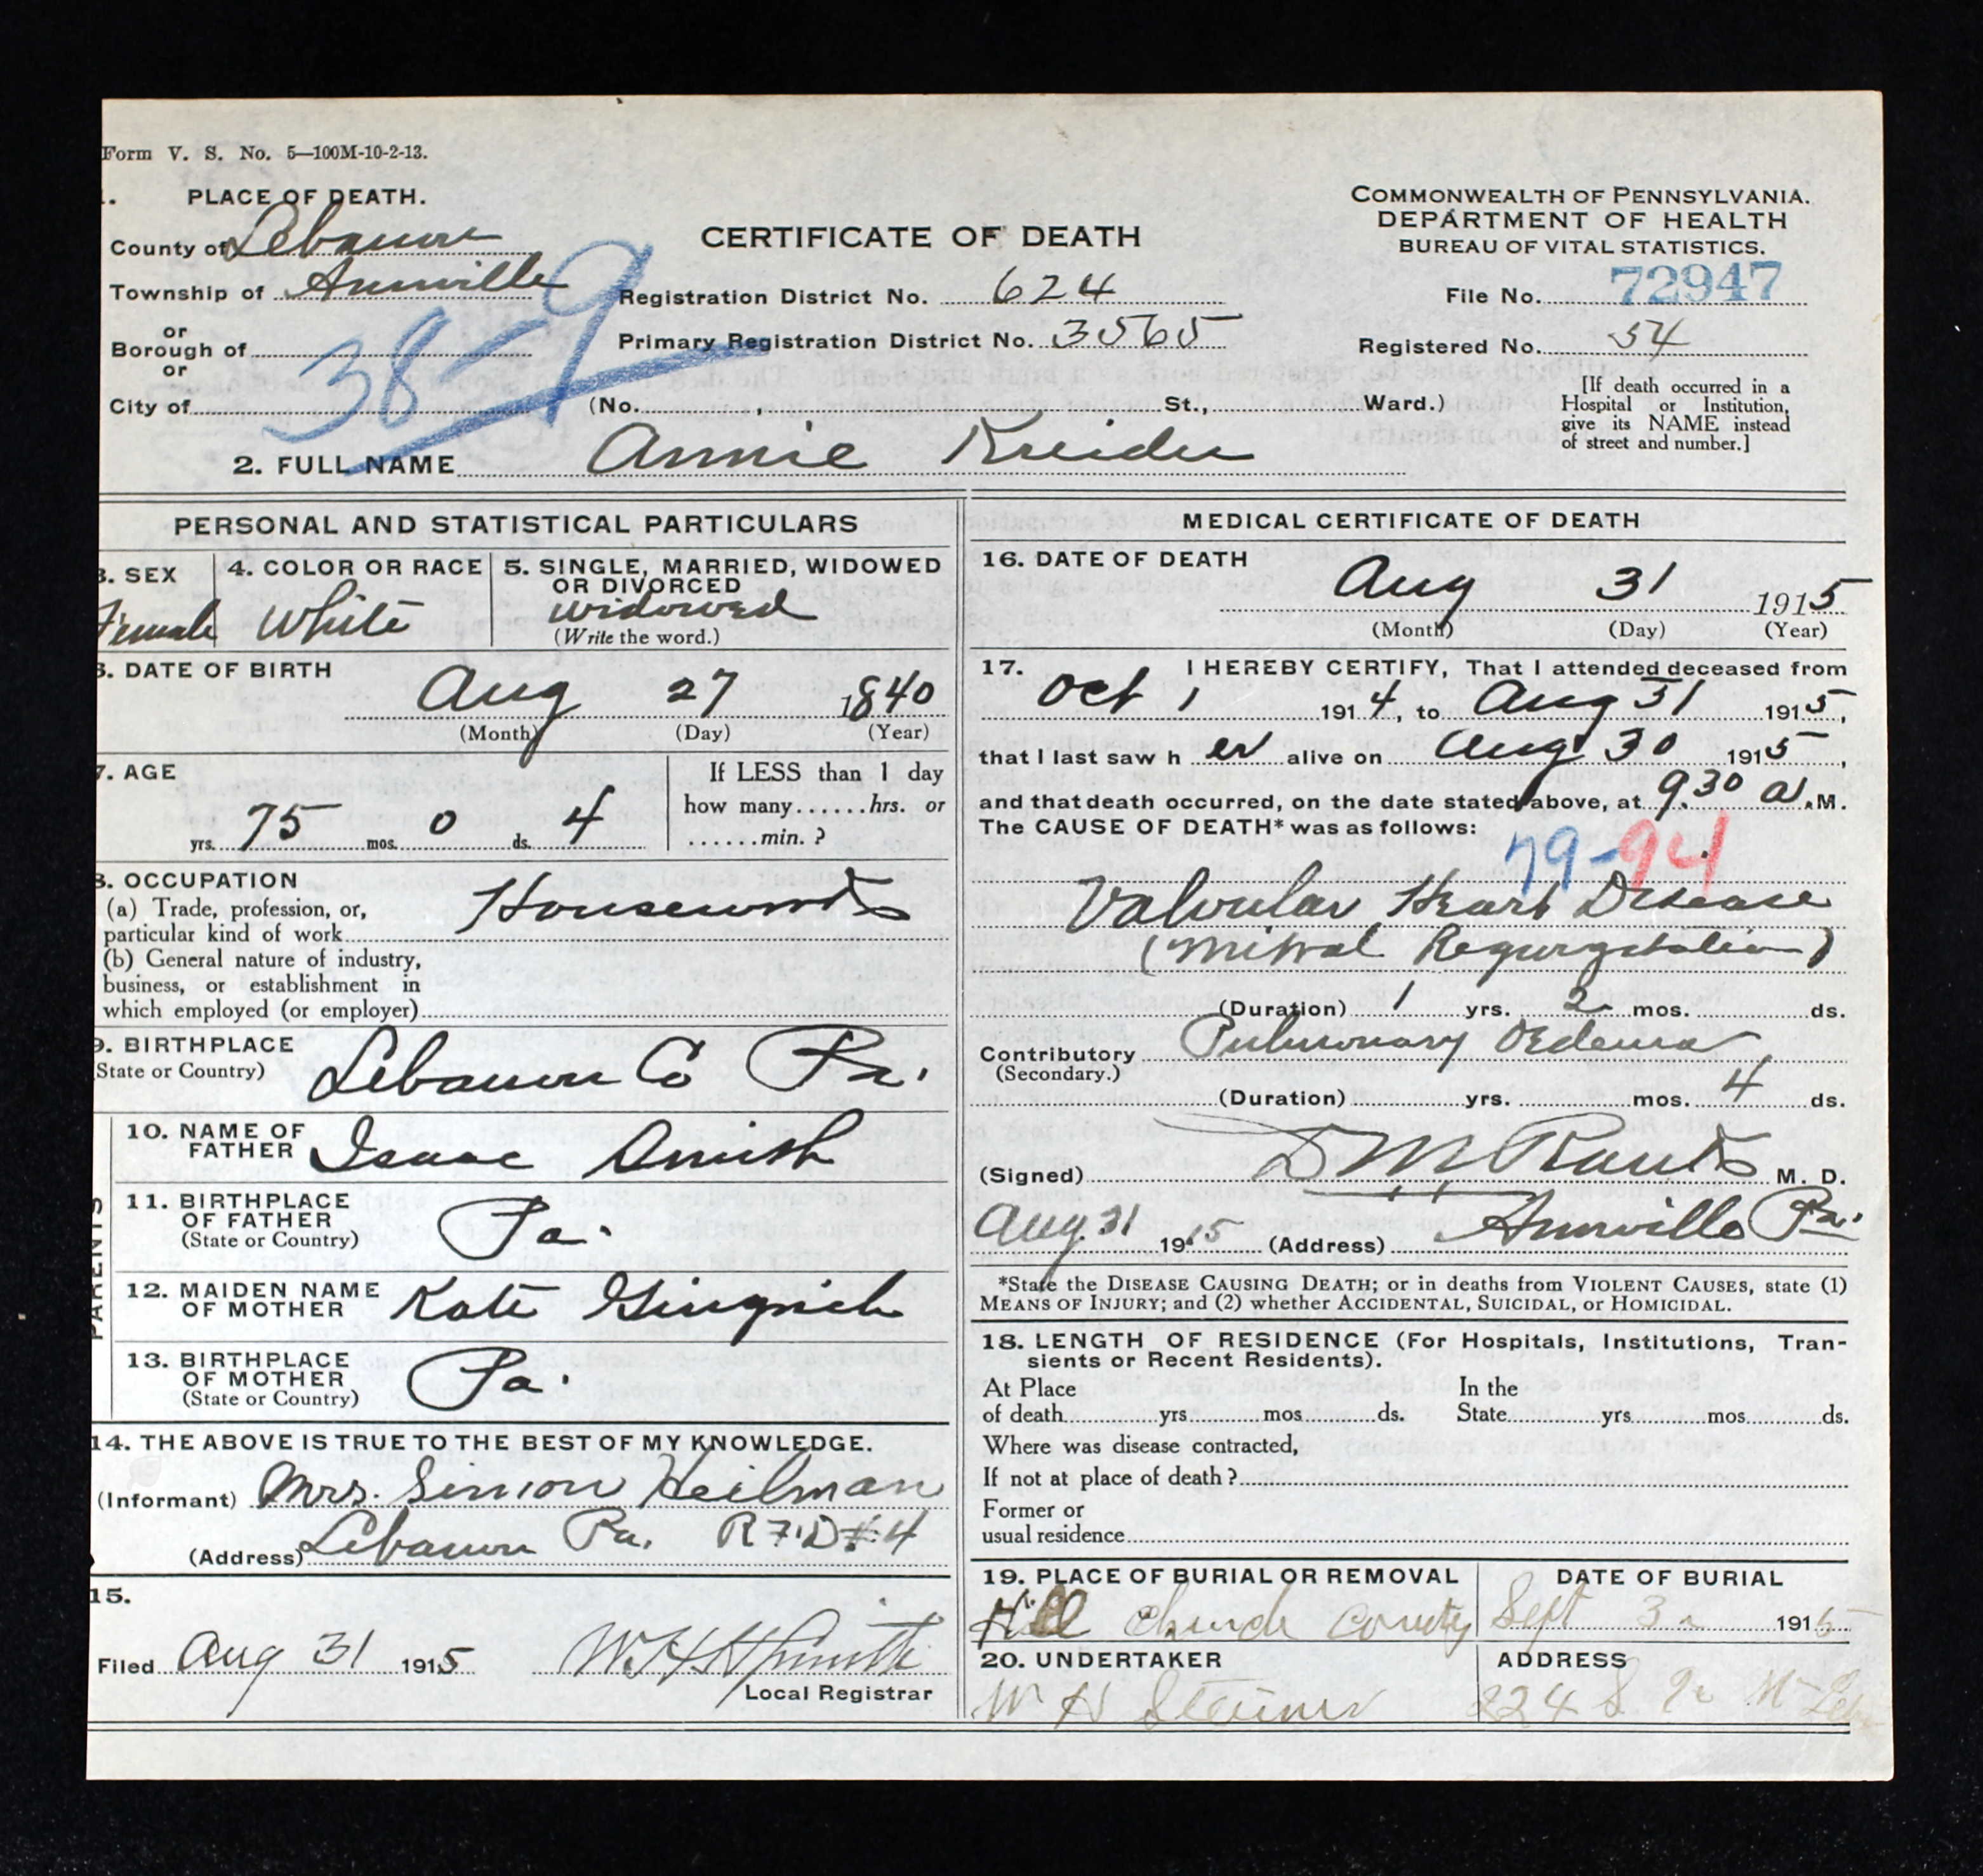 Form V. S. No. 5—100M-10-2-13.
PLACE OF DEATH.
County of Lebanon
Township of Annville
or
Borough of
or
City of
3859
CERTIFICATE OF DEATH
Registration District No. 624
Primary Registration District No. 3565
(No. , St., Ward.)
COMMONWEALTH OF PENNSYLVANIA.
DEPARTMENT OF HEALTH
BUREAU OF VITAL STATISTICS.
File No. 72947
Registered No. 54
[If death occurred in a
Hospital or Institution,
give its NAME instead
of street and number.]
2. FULL NAME Annie Kreider
PERSONAL AND STATISTICAL PARTICULARS
3. SEX
Female
4. COLOR OR RACE
White
5. SINGLE, MARRIED, WIDOWED
OR DIVORCED
widowed
(Write the word.)
6. DATE OF BIRTH
Aug 27 1840
(Month) (Day) (Year)
7. AGE
yrs. 75 mos. 0 ds. 4
If LESS than 1 day
how many......hrs. or
......min.?
8. OCCUPATION
(a) Trade, profession, or,
particular kind of work Housework
(b) General nature of industry,
business, or establishment in
which employed (or employer)
9. BIRTHPLACE
(State or Country) Lebanon Co Pa.
PARENTS
10. NAME OF
FATHER Isaac
11. BIRTHPLACE
OF FATHER
(State or Country) Pa.
12. MAIDEN NAME
OF MOTHER Kate Gingrich
13. BIRTHPLACE
OF MOTHER
(State or Country) Pa.
14. THE ABOVE IS TRUE TO THE BEST OF MY KNOWLEDGE.
(Informant) Mrs. Simon Heilman
(Address) Lebanon Pa. R.F.D #4
15.
Filed Aug 31 1915
Local Registrar
MEDICAL CERTIFICATE OF DEATH
16. DATE OF DEATH
Aug 31 1915
(Month) (Day) (Year)
17. I HEREBY CERTIFY, That I attended deceased from
Oct 1 1914, to Aug 31 1915,
that I last saw h er alive on Aug 30 1915,
and that death occurred, on the date stated above, at 9.30 a.M.
The CAUSE OF DEATH* was as follows:
79-94
Valvular Heart Disease
(Mitral Regurgitation)
(Duration) 1 yrs. 2 mos. ds.
Contributory Pulmonary Oedema
(Secondary.)
(Duration) yrs. mos. 4 ds.
(Signed) M. D.
Aug. 31 1915 (Address) Annville Pa.
*State the DISEASE CAUSING DEATH; or in deaths from VIOLENT CAUSES, state (1)
MEANS OF INJURY; and (2) whether ACCIDENTAL, SUICIDAL, or HOMICIDAL.
18. LENGTH OF RESIDENCE (For Hospitals, Institutions, Tran-
sients or Recent Residents).
At Place In the
of death yrs. mos. ds. State yrs. mos. ds.
Where was disease contracted,
If not at place of death?
Former or
usual residence
19. PLACE OF BURIAL OR REMOVAL
Hill Church
DATE OF BURIAL
Sept 3 1915
20. UNDERTAKER
W H
ADDRESS